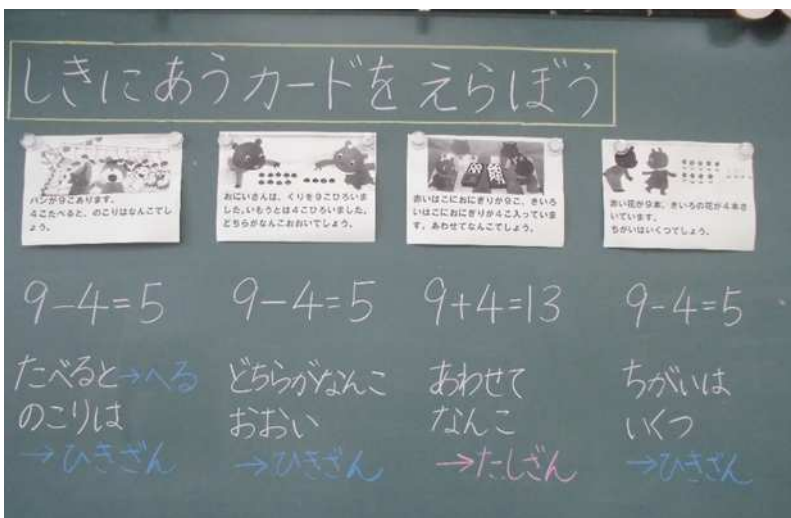 しきにあうカードをえらぼう
パンが9こあります。
4こたべると、のこりはなんこでしょ
う。
おにいさんは、くりを9こひろいま
した。いもうとは4こひろいました。
どちらがなんこおおいでしょう。
赤いはこにおにぎりが9こ、きいろ
いはこにおにぎりが4こ入っていま
す。あわせてなんこでしょう。
赤い花が9本、きいろの花が4本さ
いています。
ちがいはいくつでしょう。
9-4=5
9-4=5
9+4=13
9-4=5
たべると→へる
のこりは
→ひきざん
どちらがなんこ
おおい
→ひきざん
あわせて
なんこ
→たしざん
ちがいは
いくつ
→ひきざん